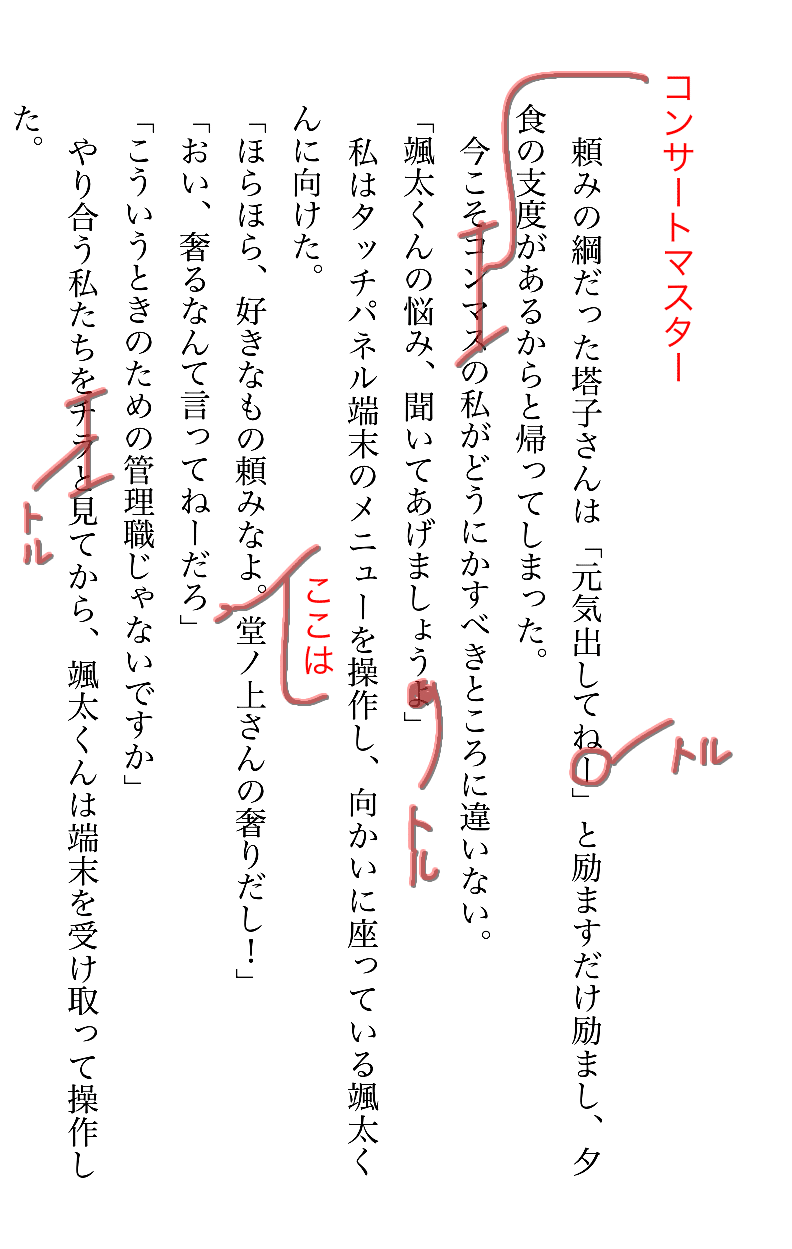 コンサートマスター
頼みの綱だった塔子さんは「元気出してねー」と励ますだけ励まし、夕
トル
食の支度があるからと帰ってしまった。
今こそコンマスの私がどうにかすべきところに違いない。
「颯太くんの悩み、聞いてあげましょうよ」
トル
私はタッチパネル端末のメニューを操作し、向かいに座っている颯太く
んに向けた。
ここは
「ほらほら、好きなもの頼みなよ。堂ノ上さんの奢りだし！」
「おい、奢るなんて言ってねーだろ」
「こういうときのための管理職じゃないですか」
やり合う私たちをチラと見てから、颯太くんは端末を受け取って操作し
トル
た。